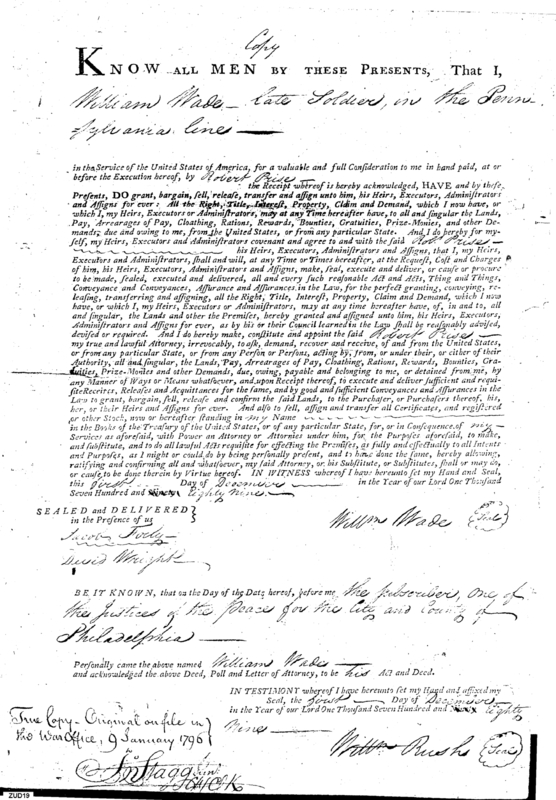 Copy
KNOW ALL MEN BY THESE PRESENTS, That I,
William Wade - late Soldier, in the Penn
sylvania line —
in the Service of the United States of America, for a valuable and full Consideration to me in hand paid, at or
before the Execution hereof, by Robert Prise
the Receipt whereof is hereby acknowledged, HAVE and by these
Presents, DO grant, bargain, sell, release, transfer and assign unto him, his Heirs, Executors, Administrators
and Assigns for ever: All the Right, Title, Interest, Property, Claim and Demand, which I now have, or
which I, my Heirs, Executors or Administrators, may at any Time hereafter have, to all and singular the Lands,
Pay, Arrearages of Pay, Cloathing, Rations, Rewards, Bounties, Gratuities, Prize-Monies, and other De-
mands; due and owing to me, from the United States, or from any particular State. And I do hereby for my-
self, my Heirs, Executors and Administrators covenant and agree to and with the said Robt Prise -
his Heirs, Executors, Administrators and Assigns, that I, my Heirs,
Executors and Administrators, shall and will, at any Time or Times hereafter, at the Request, Cost and Charges
of him, his Heirs, Executors, Administrators and Assigns, make, seal, execute and deliver, or cause or procure
to be made, sealed, executed and delivered, all and every such reasonable Act and Acts, Thing and Things,
Conveyance and Conveyances, Assurance and Assurances in the Law, for the perfect granting, conveying, re-
leasing, transferring and assigning, all the Right, Title, Interest, Property, Claim and Demand, which I now
have, or which I, my Heirs, Executors or Administrators, may at any time hereafter have, of, in and to, all
and singular, the Lands and other the Premises, hereby granted and assigned unto him, his Heirs, Executors,
Administrators and Assigns for ever, as by his or their Council learned in the Law shall be reasonably advised,
devised or required. And I do hereby make, constitute and appoint the said Robert Prise -
my true and lawful Attorney, irrevocably, to ask, demand, recover and receive, of and from the United States,
or from any particular State, or from any Person or Persons, acting by, from, or under their, or either of their
Authority, all and singular, the Lands, Pay, Arrearages of Pay, Cloathing, Rations, Rewards, Bounties, Gra-
tuities, Prize-Monies and other Demands, due, owing, payable and belonging to me, or detained from me, by
any Manner of Ways or Means whatsoever, and upon Receipt thereof, to execute and deliver, sufficient and requi-
site Receipts, Releases and Acquittances for the same, and by good and sufficient Conveyances and Assurances in the
Law to grant, bargain, sell, release and confirm the said Lands, to the Purchaser, or Purchasers thereof, his,
her, or their Heirs and Assigns for ever. And also to sell, assign and transfer all Certificates, and registered
or other Stock, now or hereafter standing in my Name
in the Books of the Treasury of the United States, or of any particular State, for, or in Consequence of my
Services as aforesaid, with Power an Attorney or Attornies under him, for the Purposes aforesaid, to make,
and substitute, and to do all lawful Acts requisite for effecting the Premises, as fully and effectually to all Intents
and Purposes, as I might or could do by being personally present, and to have done the same, hereby allowing,
ratifying and confirming all and whatsoever, my said Attorney, or his Substitute, or Substitutes, shall or may do,
or cause to be done therein by Virtue hereof. IN WITNESS whereof I have hereunto set my Hand and Seal,
this first Day of December in the Year of our Lord One Thousand
Seven Hundred and Ninety Eighty Nine -
SEALED and DELIVERED
in the Presence of us
William Wade (Seal)
Jacob
David Wright
BE IT KNOWN, that on the Day of the Date hereof, before me the subscriber, one of
the Justices of the Peace for the City and County of
Philadelphia —
Personally came the above named William Wade
and acknowledged the above Deed, Poll and Letter of Attorney, to be his Act and Deed.
IN TESTIMONY whereof I have hereunto set my Hand and affixed my
Seal, the first Day of December
in the Year of our Lord One Thousand Seven Hundred and Ninety Eighty
Nine —
Willm Rush (Seal)
True Copy - Original on file in
the War Office, 9 January 1796
Jn Stagg Junr
ZUD19